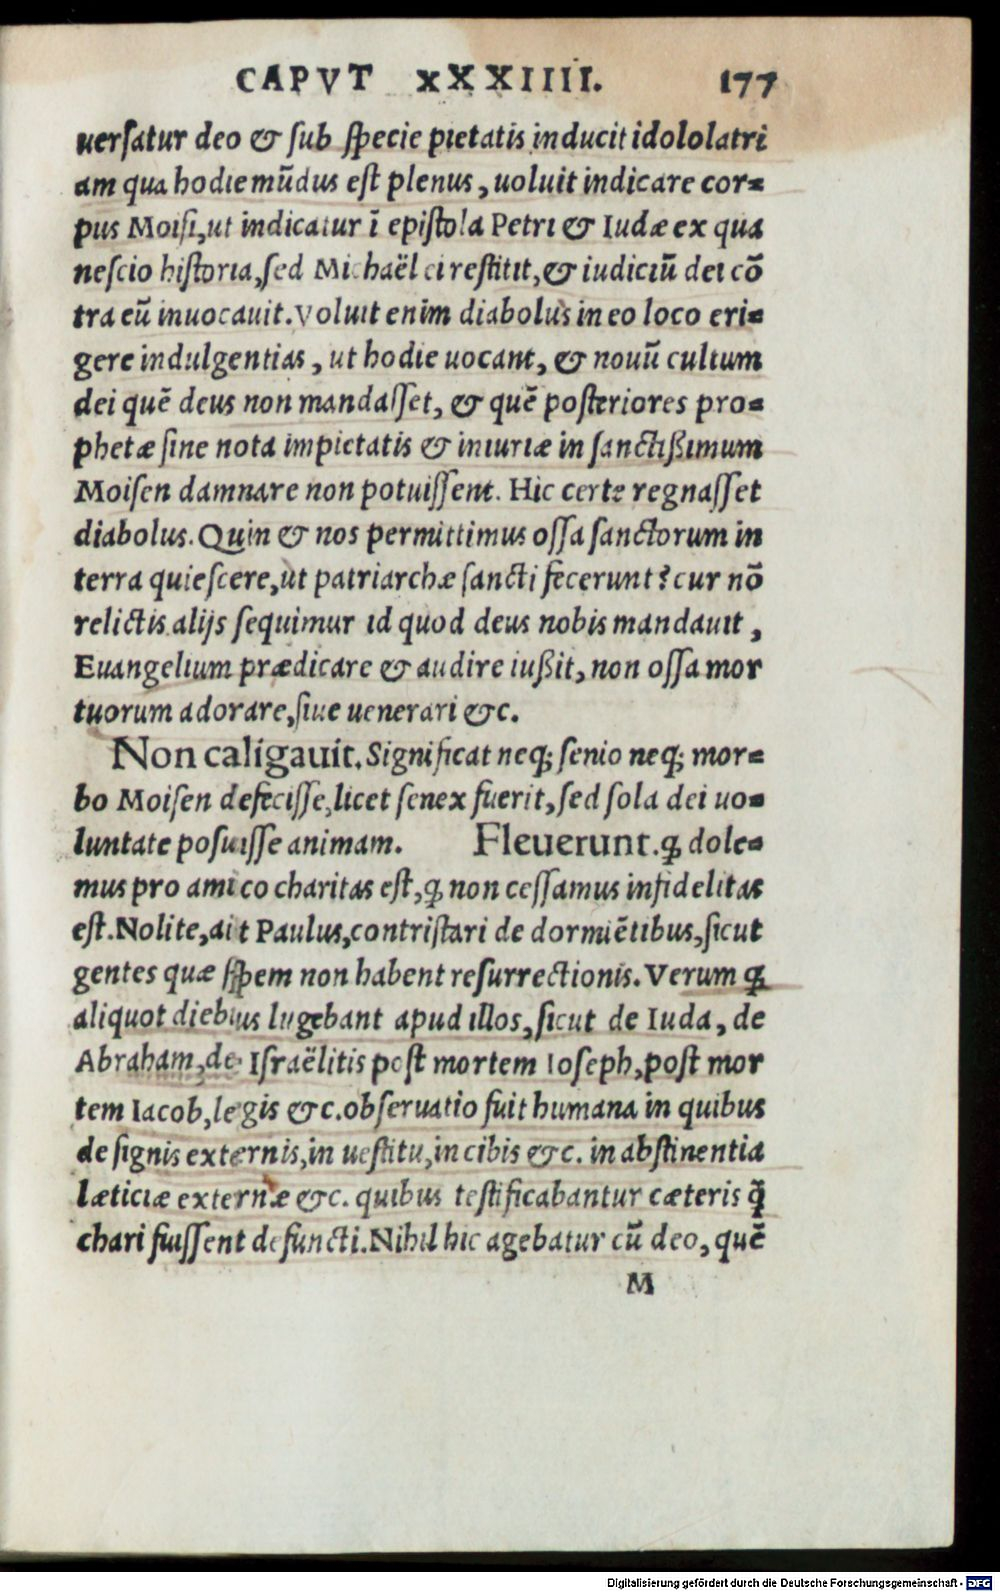 CAPVT XXXIIII. 177
uersatur deo & sub specie pietatis inducit idololatri
am qua hodie mūdus est plenus, uoluit indicare cor=
pus Moisi, ut indicatur ī epistola Petri & Iudæ ex qua
nescio historia, sed Michaël ei restitit, & iudiciū dei cō
tra eū inuocauit. Voluit enim diabolus in eo loco eri=
gere indulgentias, ut hodie uocant, & nouū cultum
dei quē deus non mandasset, & quē posteriores pro=
phetæ sine nota impietatis & iniuriæ in sanctißimum
Moisen damnare non potuissent. Hic certe regnasset
diabolus. Quin & nos permittimus ossa sanctorum in
terra quiescere, ut patriarchæ sancti fecerunt? cur nō
relictis alijs sequimur id quod deus nobis mandauit,
Euangelium prædicare & audire iußit, non ossa mor
tuorum adorare, siue uenerari &c.
Non caligauit. Significat neq; senio neq; mor=
bo Moisen defecisse, licet senex fuerit, sed sola dei uo=
luntate posuisse animam. Fleuerunt. ꝙ dole=
mus pro amico charitas est, ꝙ non cessamus infidelitas
est. Nolite, ait Paulus, contristari de dormiētibus, sicut
gentes quæ spem non habent resurrectionis. Verum ꝙ
aliquot diebus lugebant apud illos, sicut de Iuda, de
Abraham, de Israëlitis post mortem Ioseph, post mor
tem Iacob, legis &c. obseruatio fuit humana in quibus
de signis externis, in uestitu, in cibis &c. in abstinentia
læticiæ externæ &c. quibus testificabantur cæteris q̃
chari fuissent defuncti. Nihil hic agebatur cū deo, quē
M
Digitalisierung gefördert durch die Deutsche Forschungsgemeinschaft - DFG